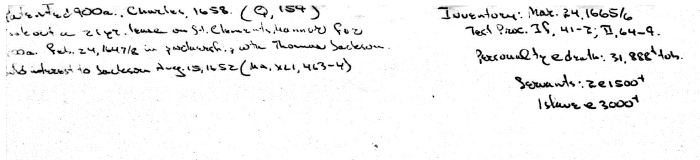 Patented 900a., Charles, 1658. (Q, 154)
Took out a 21 yr. lease on St. Clements Mannor for
00a. Feb. 24, 1647/8 in partnership with Thomas Jackson.
Sold interest to Jackson Aug. 15, 1652 (MA, XLI, 463-4)
Inventory: Mar. 24, 1665/6
Test Proc. IF, 41-2; II, 64-9.
Personalty @ death: 31,888# tob.
Servants: 2@1500#
1 slave @ 3000#